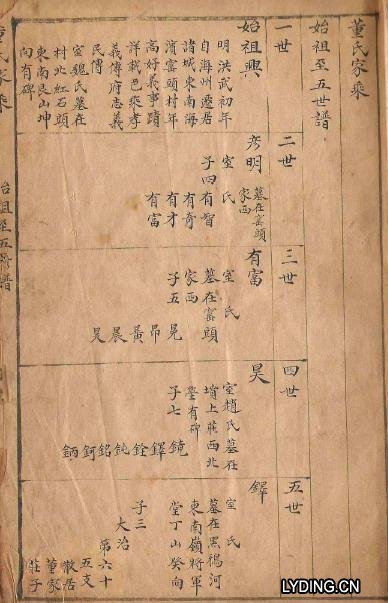 董氏家乘
始祖至五世譜
一世
始祖興
明洪武初年
自海州遷居
諸城東南海
濱窑頭村年
高好義事蹟
詳載邑乘孝
義傳府志義
民傳
室魏氏墓在
村北紅石頭
東南艮山坤
向有碑
二世
彦明
墓在窑頭
家西
室氏
子四有智
有奇
有才
有富
三世
有富
室氏
墓在窑頭
家西
子五晃
昂
黃
晨
昊
四世
昊
室趙氏墓在
塋上莊西北
塋有碑
子七鏡
鐸
銓
鈍
銘
鈳
鈵
五世
鐸
室氏
墓在黑鴉河
東南嶺將軍
堂丁山癸向
子三
大治
第六十
五支
散居
董家
莊子
董氏家乘
始祖至五世譜
LYDING.CN